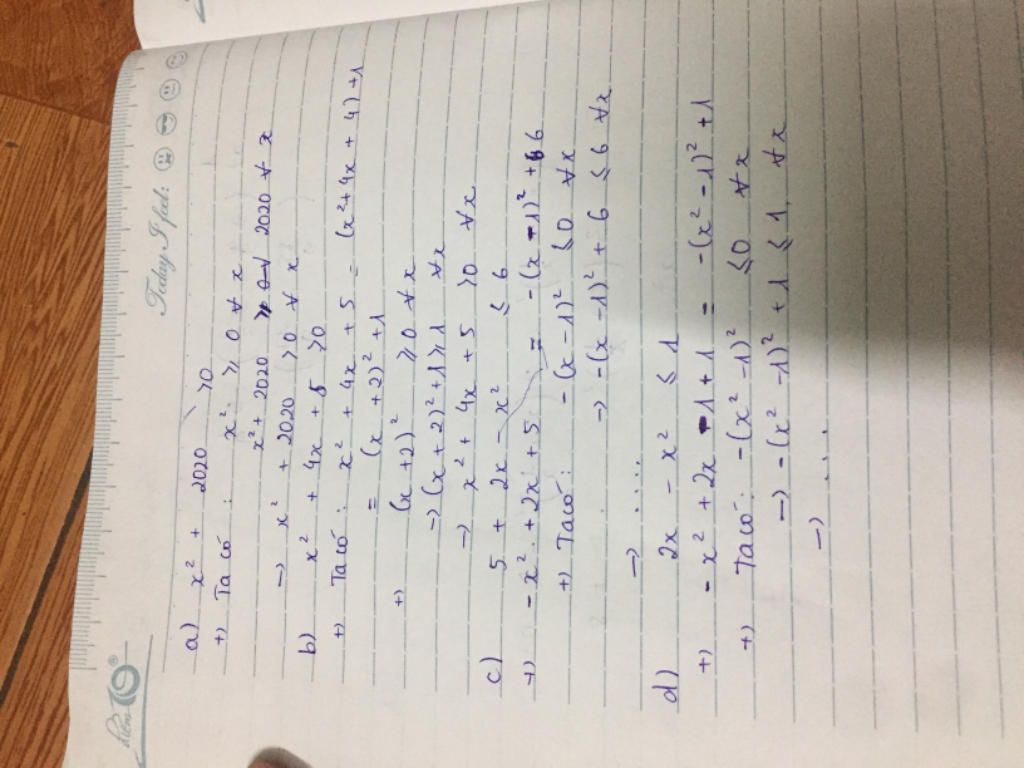 Today, I feel:
Tiến ®
a) x² + 2020 > 0
+) Ta có : x² ⩾ 0 ∀ x
x² + 2020 ⩾ 2020 ∀ x
→ x² + 2020 > 0 ∀ x
b) x² + 4x + 5 > 0
+) Ta có : x² + 4x + 5 = (x² + 4x + 4) + 1
= (x + 2)² + 1
+) (x + 2)² ⩾ 0 ∀ x
→ (x + 2)² + 1 ⩾ 1 ∀ x
→ x² + 4x + 5 > 0 ∀ x
c) 5 + 2x - x² ⩽ 6
+) - x² + 2x + 5 = - (x - 1)² + 6
+) Ta có : - (x - 1)² ⩽ 0 ∀ x
→ - (x - 1)² + 6 ⩽ 6 ∀ x
→ ....
d) 2x - x² ⩽ 1
+) - x² + 2x - 1 + 1 = - (x² - 1)² + 1
+) Ta có : - (x² - 1)² ⩽ 0 ∀ x
→ - (x² - 1)² + 1 ⩽ 1 ∀ x
→ ....